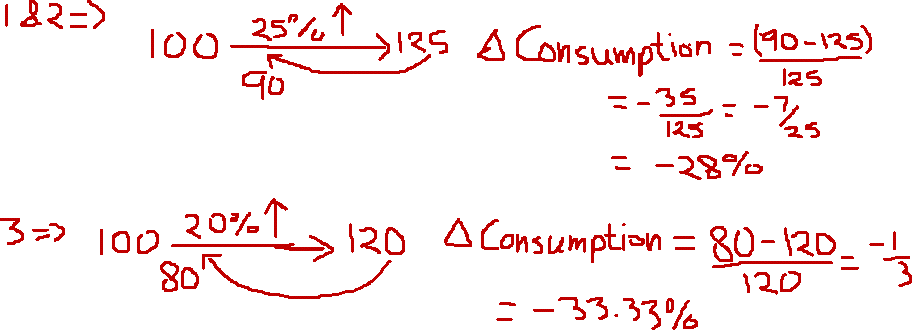 1&2=> 100 25% ↑ 125 Δ Consumption = (90-125)
90 125
= -35 = -7/25
125
= -28%
3=> 100 20% ↑ 120 Δ Consumption = 80-120 = -1
80 120 3
= -33.33%